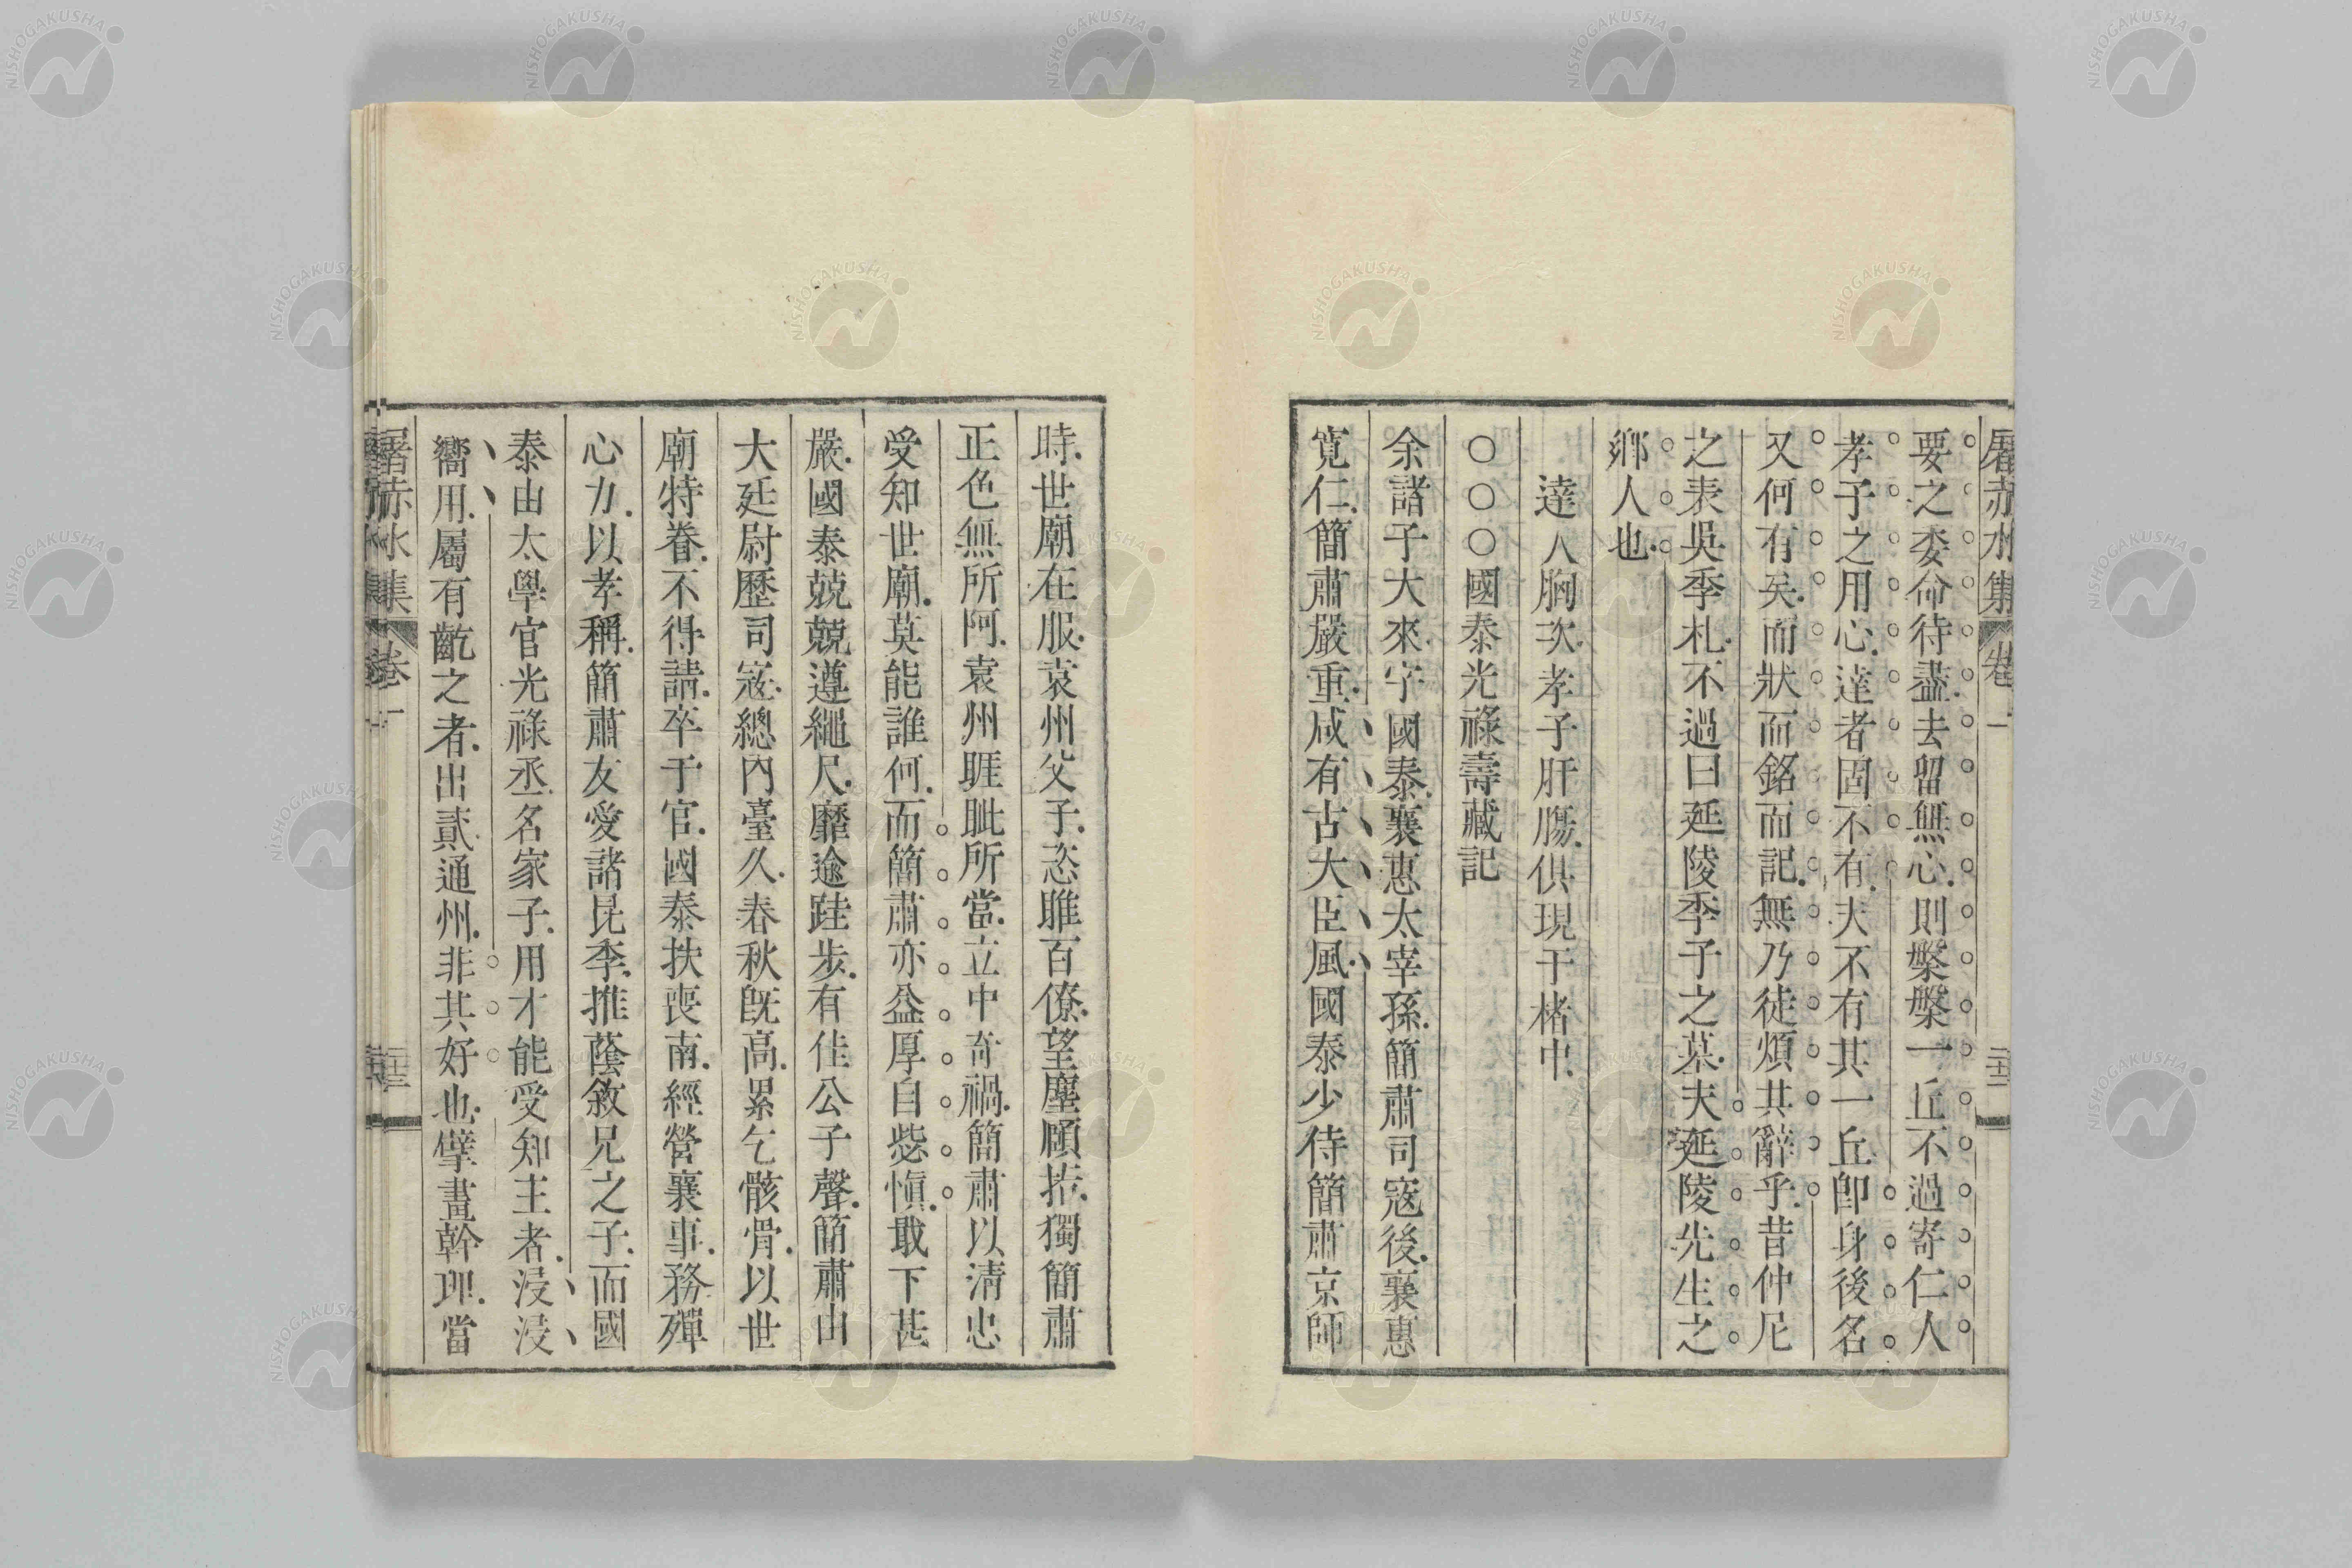 屠赤水集 卷一 二十二
要之委命待盡去留無心則槃槃一丘不過寄仁人
孝子之用心達者固不有夫不有其一丘卽身後名
又何有矣而狀而銘而記無乃徒煩其辭乎昔仲尼
之表吳季札不過曰延陵季子之墓夫延陵先生之
鄉人也
達人胸次孝子肝膓俱現于楮中
○○○國泰光祿壽藏記
余諸子大來字國泰襄惠太宰孫簡肅司寇後襄惠
寬仁簡肅嚴重咸有古大臣風國泰少侍簡肅京師
時世廟在服袁州父子恣睢百僚望塵頤指獨簡肅
正色無所阿袁州睚眦所當立中奇禍簡肅以淸忠
受知世廟莫能誰何而簡肅亦益厚自毖愼戢下甚
嚴國泰兢兢遵繩尺靡逾跬步有佳公子聲簡肅由
大廷尉歷司寇總內臺久春秋旣高累乞骸骨以世
廟特眷不得請卒于官國泰扶喪南經營襄事務殫
心力以孝稱簡肅友愛諸昆季推蔭敘兄之子而國
泰由太學官光祿丞名家子用才能受知主者浸浸
嚮用屬有齮之者出貳通州非其好也擘畫幹理當
屠赤水集 卷一 二十三